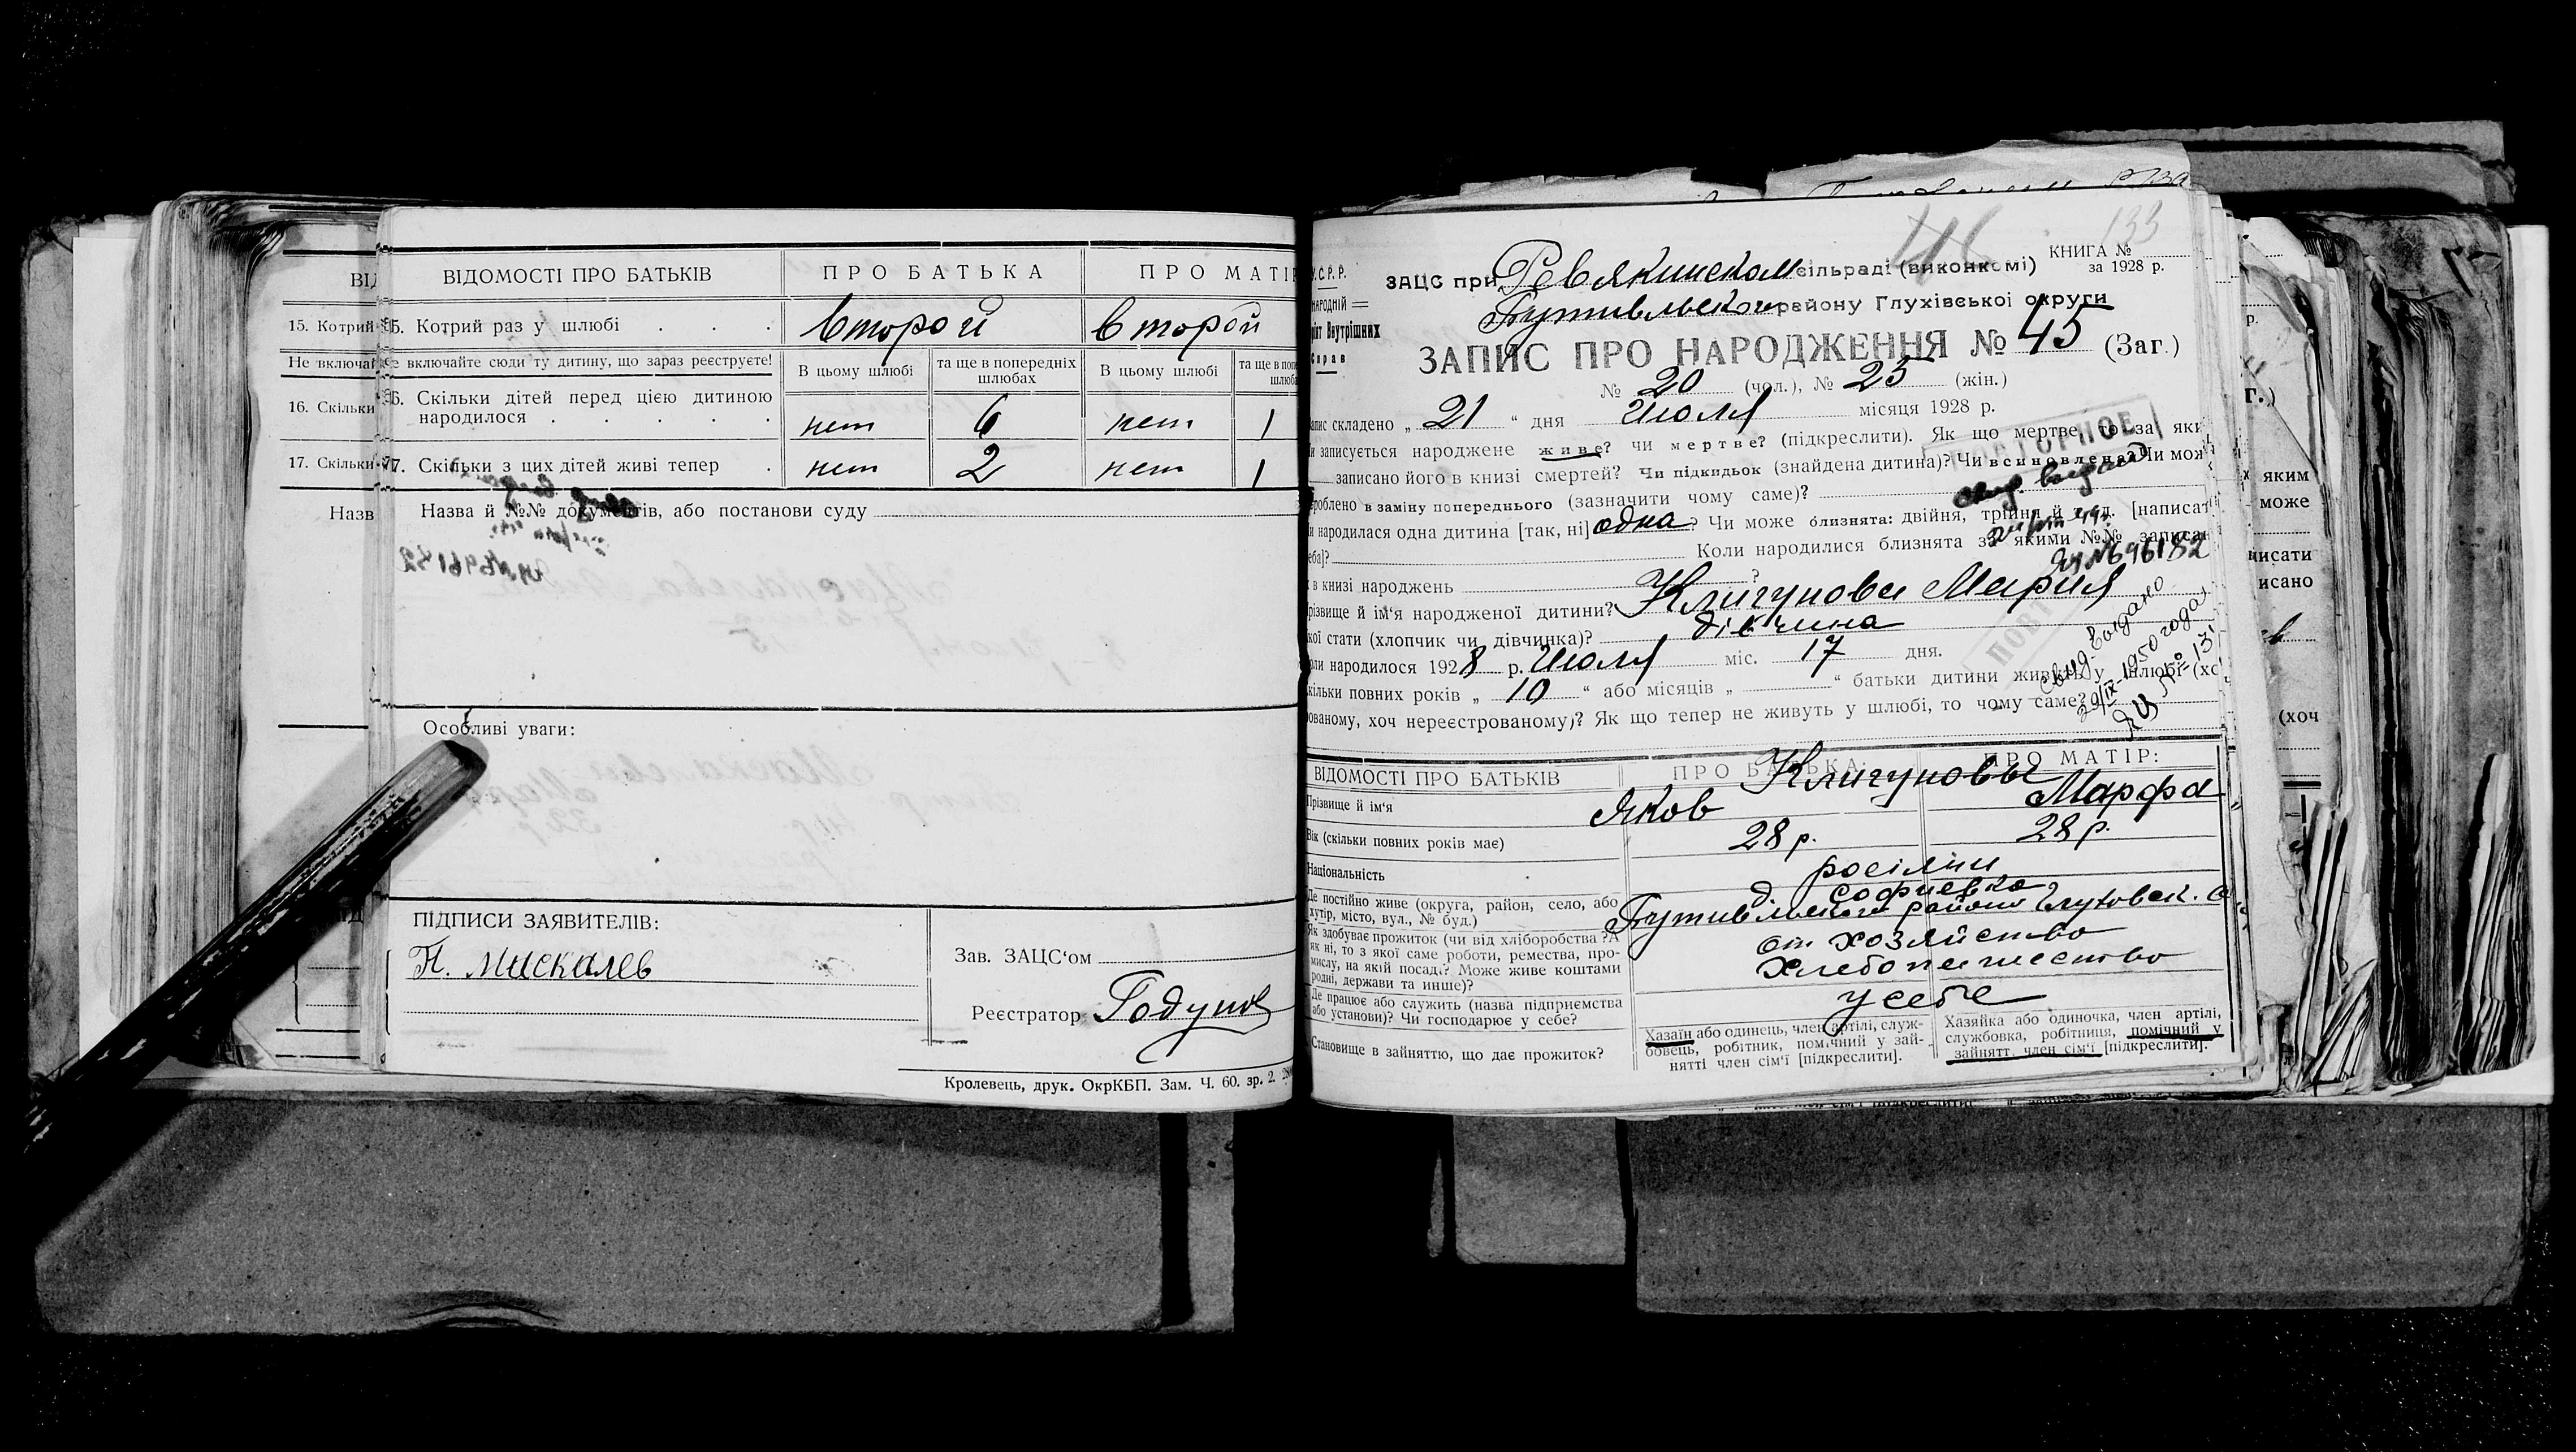 ВІДОМОСТІ ПРО БАТЬКІВ ПРО БАТЬКА ПРО МАТІР
15. Котрий
5. Котрий раз у шлюбі . . . второй второй
Не включай
е включайте сюди ту дитину, що зараз реєструєте! В цьому шлюбі та ще в попередніх шлюбах В цьому шлюбі та ще в попе шлюба
16. Скільки
6. Скільки дітей перед цією дитиною народилося . . . . . нет 6 нет 1
17. Скільки
7. Скільки з цих дітей живі тепер . нет 2 нет 1
Назв
Назва й №№ документів, або постанови суду
Особливі уваги:
ПІДПИСИ ЗАЯВИТЕЛІВ:
П. Маскалев
Зав. ЗАЦС'ом
Реєстратор Годунов
Кролевець, друк. ОкрКБП. Зам. Ч. 60. зр. 2.
133
КНИГА №
за 1928 р.
У.С.Р.Р.
НАРОДНІЙ
Внутрішних
Справ
ЗАЦС при Ревякинском сільраді (виконкомі)
Путивльского району Глухівської округи
ЗАПИС ПРО НАРОДЖЕННЯ № 45 (Заг.)
№ 20 (чол.), № 25 (жін.)
апис складено „ 21 “ дня Июля місяця 1928 р.
и записується народжене живе? чи мертве? (підкреслити). Як що мертве, то за яки
записано його в книзі смертей? Чи підкидьок (знайдена дитина)? Чи всиновлена? Чи мож
ПОВТОРНОЕ
роблено в заміну попереднього (зазначити чому саме)?
свид. выдано
и народилася одна дитина [так, ні] одна? Чи може близнята: двійня, трійня й т.д. [написат
еба]? Коли народилися близнята за якими №№ записан
№ 696182
в книзі народжень ?
різвище й ім'я народженої дитини? Клигунова Мария
кої стати (хлопчик чи дівчинка)? дівчина
ПОВТ
оли народилося 1928 р. Июля міс. 17 дня.
кільки повних років „ 10 “ або місяців „ “ батьки дитини живуть у шлюбі (хо
ованому, хоч нереєстрованому)? Як що тепер не живуть у шлюбі, то чому саме?
свид. выдано
29/IX-1950 года
ВІДОМОСТІ ПРО БАТЬКІВ ПРО БАТЬКА: ПРО МАТІР:
Клигуновы
Прізвище й ім'я Яков Марфа
Вік (скільки повних років має) 28 р. 28 р.
Національність росіяни
Де постійно живе (округа, район, село, або хутір, місто, вул., № буд.) д Софиевка
Путивільского району Глуховск. о
Як здобуває прожиток (чи від хліборобства? А як ні, то з якої саме роботи, ремества, промислу, на якій посаді? Може живе коштами родні, держави та инше)? от хозяйство
хлебопашество
Де працює або служить (назва підприємства або установи)? Чи господарює у себе? у себе
Становище в зайняттю, що дає прожиток?
Хазаїн або одинець, член артілі, службовець, робітник, помічний у зайнятті член сім'ї [підкреслити].
Хазяйка або одиночка, член артілі, службовка, робітниця, помічний у зайнятт. член сім'ї [підкреслити].
яким
може
писати
исано
(хоч